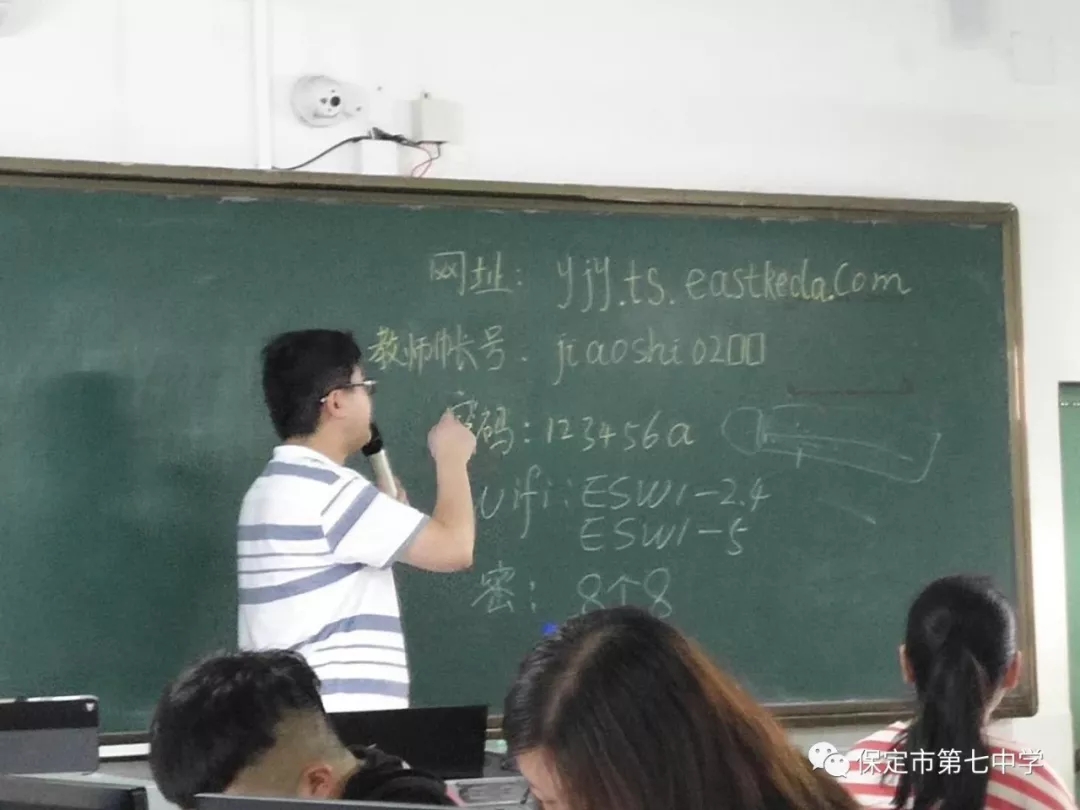 网址：yjy.ts.eastkeda.com
教师帐号：jiaoshi02□□
密码：123456a
wifi：ESW1-2.4
ESW1-5
密：8个8
保定市第七中学